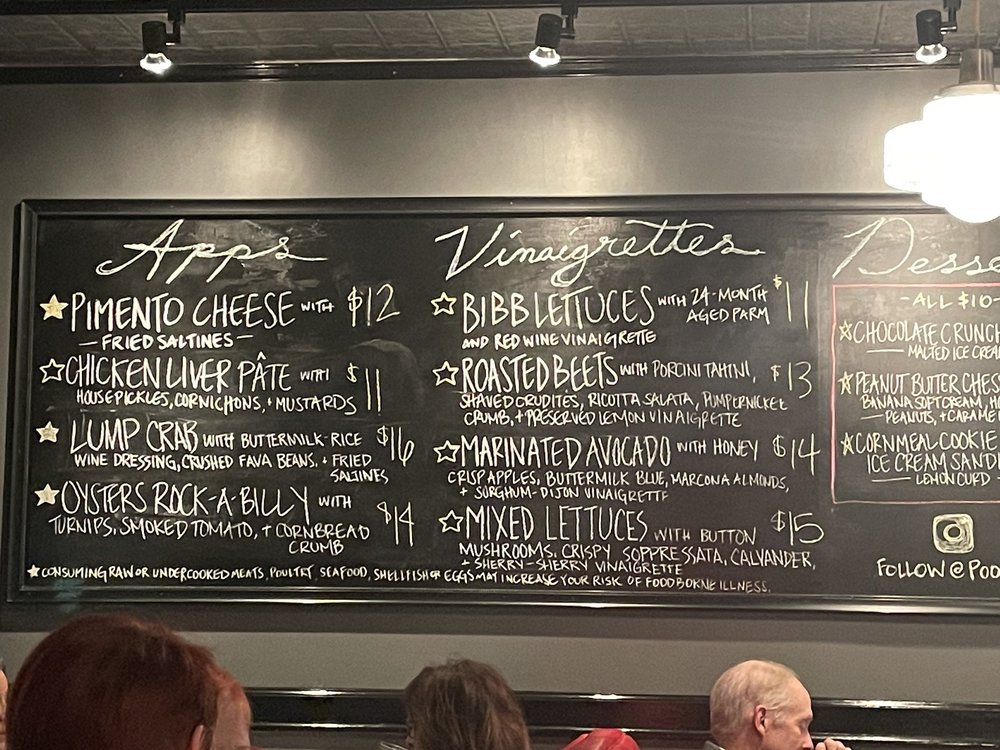 Apps
☆PIMENTO CHEESE WITH $12
—FRIED SALTINES—
☆CHICKEN LIVER PÂTE WITH $11
HOUSE PICKLES, CORNICHONS, + MUSTARDS
☆LUMP CRAB WITH BUTTERMILK-RICE $16
WINE DRESSING, CRUSHED FAVA BEANS. + FRIED
SALTINES
☆OYSTERS ROCK-A-BILLY WITH $14
TURNIPS, SMOKED TOMATO, + CORNBREAD
CRUMB
Vinaigrettes
☆BIBB LETTUCES WITH 24-MONTH $11
AGED PARM
AND RED WINE VINAIGRETTE
☆ROASTED BEETS WITH PORCINI TAHINI, $13
SHAVED CRUDITES, RICOTTA SALATA, PUMPERNICKEL
CRUMB, + PRESERVED LEMON VINAIGRETTE
☆MARINATED AVOCADO WITH HONEY $14
CRISP APPLES, BUTTERMILK BLUE, MARCONA ALMONDS,
+ SORGHUM-DIJON VINAIGRETTE
☆MIXED LETTUCES WITH BUTTON $15
MUSHROOMS, CRISPY SOPPRESSATA, CALYANDER,
+ SHERRY-SHERRY VINAIGRETTE
★CONSUMING RAW OR UNDERCOOKED MEATS, POULTRY, SEAFOOD, SHELLFISH OR EGGS MAY INCREASE YOUR RISK OF FOODBORNE ILLNESS.
Desse
-ALL $10-
☆CHOCOLATE CRUNCH
— MALTED ICE CREA
☆PEANUT BUTTER CHES
BANANA SOFT CREAM, H
— PEANUTS, + CARAME
☆CORNMEAL COOKIE
ICE CREAM SAND
— LEMON CURD
FOLLOW @POO